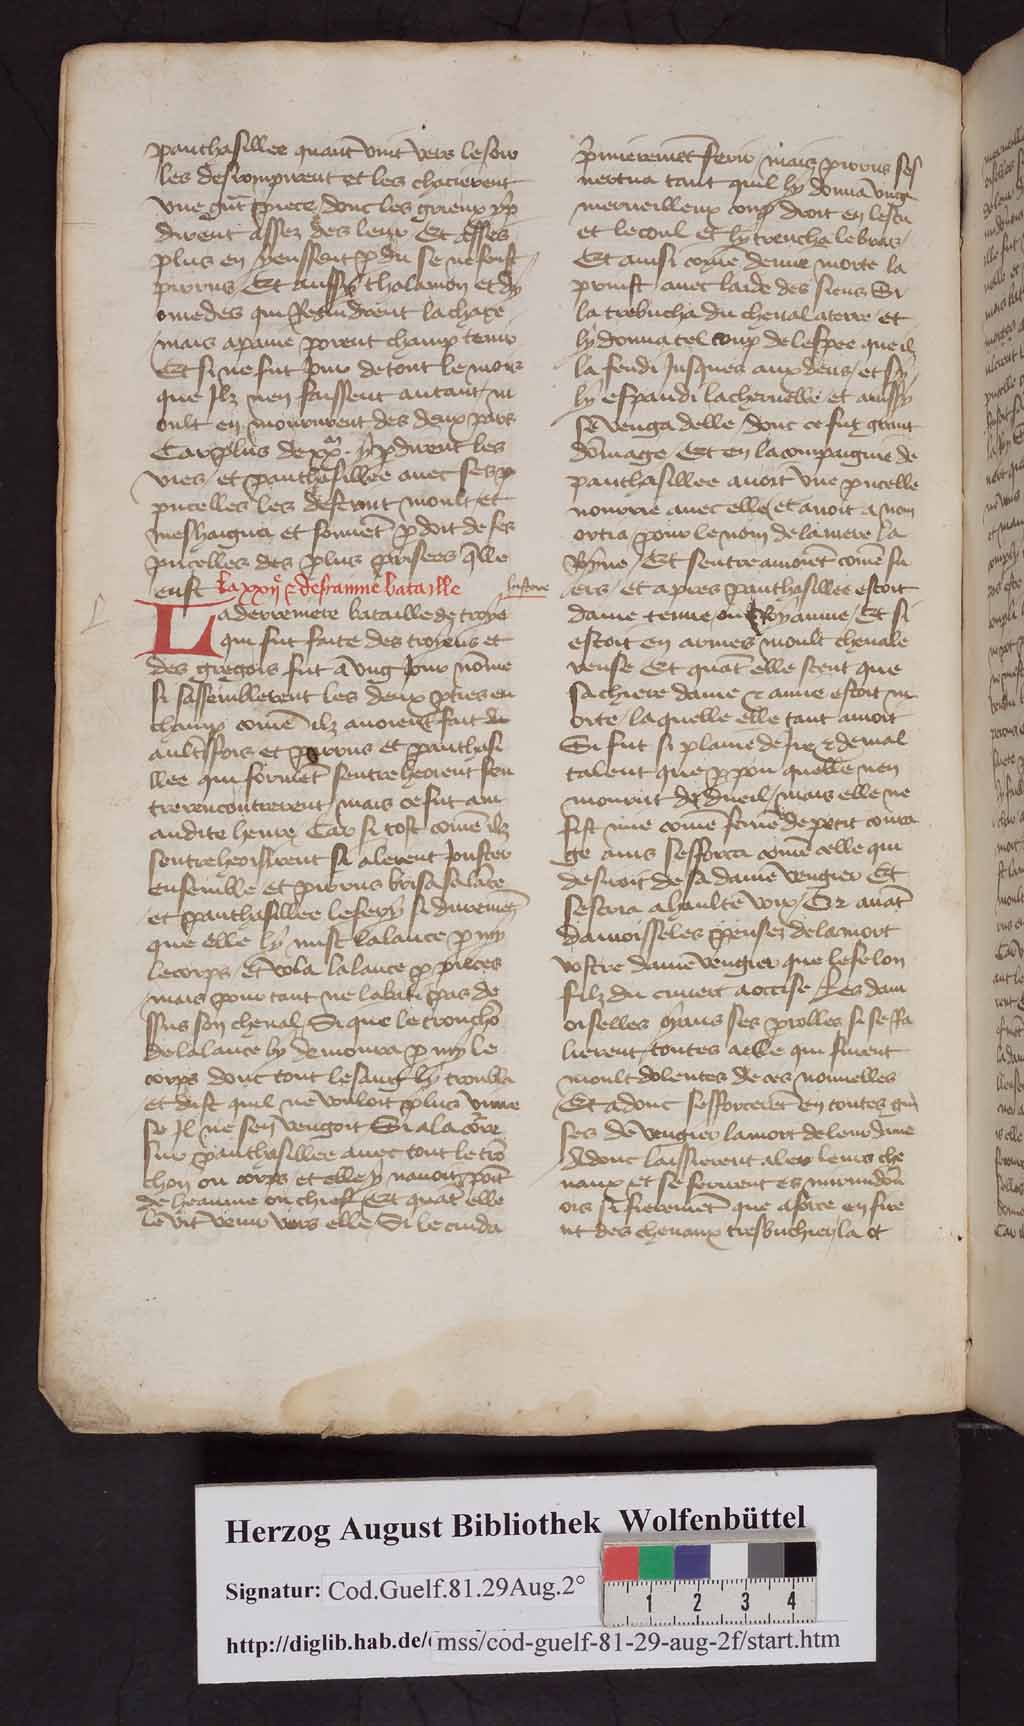 panthasillee quant vint vers le soir
les descompirent et les chacierent
vne gnt piece donc les grieux y p
dirent assez des leur Et assés
plus en y eussent pdu se ne feust
pirrus Et aussy thalamon et dy
omedes qui Resindrent la chace
mais a paine porent champ tenir
Et si ne fut Jour de tout le mois
que Ilz nen faissent autant / m
oult en mourirent des deux pars
Car plus de xxm y pdirent les
vies / et panthasillee auec ses p
pucelles les desfirent moult et
meshaigna et souuet pdoit de ses
pucelles des plus prisees qlle
eust La xxij e desrainne bataylle
L
a derreniere bataille de troye
qui fut faite des troyens et
des gregois fut a vng Jour nomé
si sassemblerent les deux pties en
champ comé ilz auoient fait de
aultsfois et pirrus et panthasi
llee qui formet sentreheoient sen
trerencontrerent / mais ce fut au
audite heure Car si tost come ilz
sentrehoisirent si alerent Jouster
ensemble et pirrus brisa sa lance
et panthasillee le fery si duremet
que elle ly mist la lance pmy
le corps / Et vola la lance p pieces
mais pour tant ne labati pas de
ssus son cheual / Si que le troncho
de la lance ly demoura pmy le
corps donc tout le sang ly troubla
et dist quil ne vouloit plus viure
se Il ne sen vengoit Si ala corre
sur panthasillee auec tout le tro
chon ou corps et elle y nauoit poit
de heaume ou chief Et quat elle
le vit venir vers elle Si le cuida
pmieremet ferir / mais pirrus ses
uertua tant quil ly donna vng
merueilleux coup droit en lescu
et le coul et ly trencha le bras /
Et ainsi come demie morte la
prinst auec laide des siens Si
la trebucha du cheual a terre / et
ly donna tel coup de lespee que il
la fendi Jusques aux dens / et sy
ly espandi la ceruelle et aussy
se venga delle / donc ce fut grant
domage Et en la compaignie de
panthasillee auoit vne pucelle
nourrie auec elle / et auoit a nom
ortia pour le nom de la mere la
Royne / Et sentreamoiet come su
ers / et apres panthasillee estoit
dame tenue ou Royaume / Et si
estoit en armes moult cheuale
reuse Et quat elle scent que
sa chiere dame & amie estoit m
orte / laquelle elle tant amoit
Si fut si plaine de Ire & de mal
talent que p pou quelle nen
mourut de dueil / mais elle ne
fist mie come feme de petit coura
ge ains sefforca come celle qui
desiroit de sa dame vengier Et
sescria a haulte voix / Or auat
damoisseles pensez de la mort
vostre dame vengier que le felon
filz du cuuert a occise Les dam
oiselles oyrans ses parolles si se ssa
lierent toutes a elle qui furent
moult dolentes de ces nouuelles
Et adonc sefforceret en toutes gui
ses de vengier la mort de leur dame
Adonc laissierent aler leurs che
uaux et se ferirent es mirmidon
ois si fierement que a force en fire
nt des cheuaux tresbuchier / la ot
Herzog August Bibliothek Wolfenbüttel
Signatur: Cod.Guelf.81.29Aug.2°
http://diglib.hab.de/mss/cod-guelf-81-29-aug-2f/start.htm
1 2 3 4